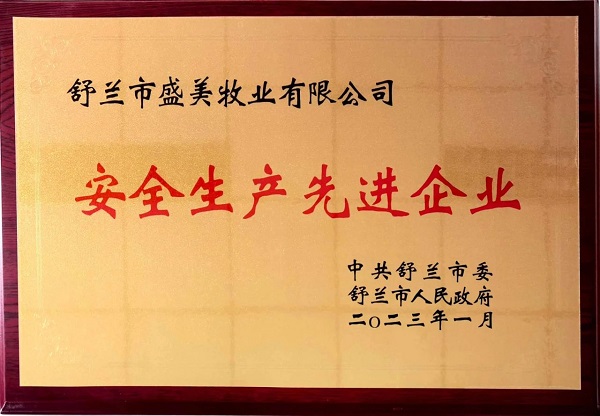 舒兰市盛美牧业有限公司
安全生产先进企业
中共舒兰市委
舒兰市人民政府
二〇二三年一月